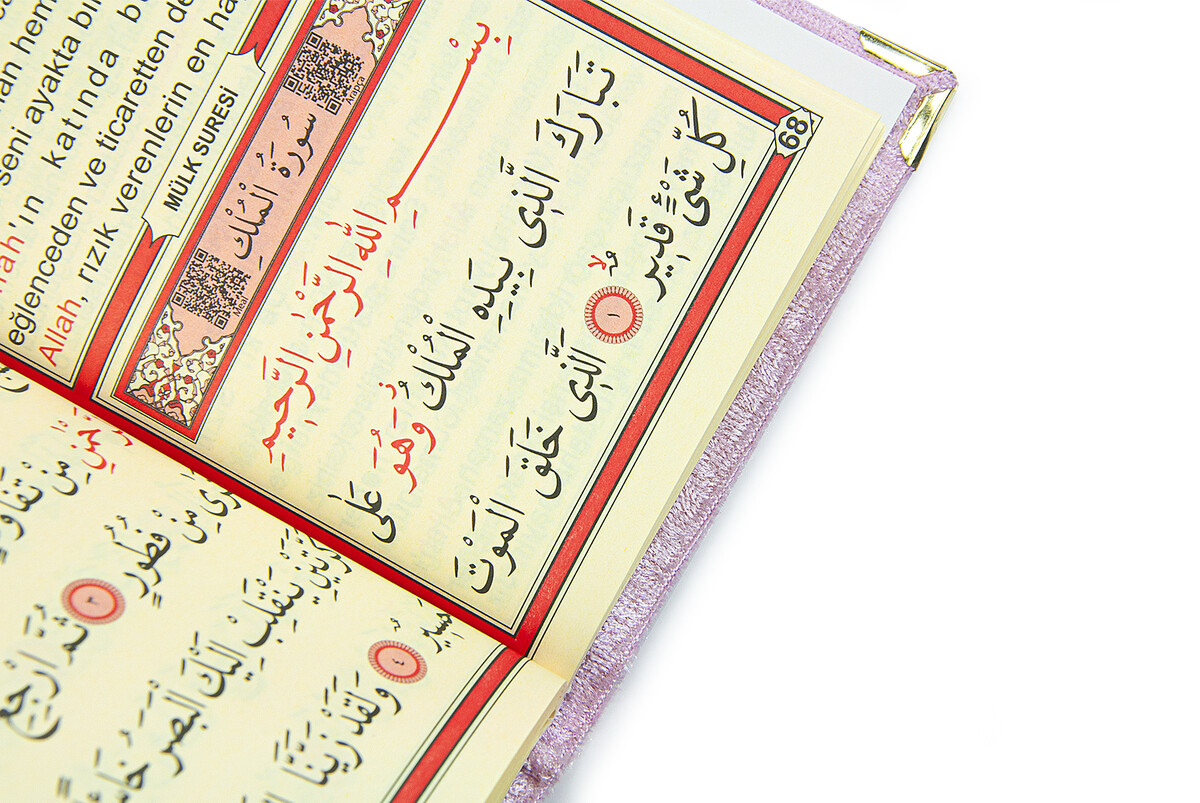 eman hem
seni ayakta b
Allah'ın katında b
eğlenceden ve ticaretten de
Allah, rızık verenlerin en ha
MÜLK SURESİ
Arapça
سُورَةُ الْمُلْكِ
Meal
بِسْمِ اللّٰهِ الرَّحْمٰنِ الرَّحِيمِ
تَبَارَكَ الَّذِى بِيَدِهِ الْمُلْكُ وَهُوَ عَلٰى
كُلِّ شَىْءٍ قَدِيرٌۙ ١ اَلَّذِى خَلَقَ الْمَوْتَ
68
مِنْ تَفَاوُ
مِنْ فُطُورٍ ٣ ثُمَّ ارْجِعِ
يَنْقَلِبْ اِلَيْكَ الْبَصَرُ
٤ وَلَقَدْ زَيَّنَّا